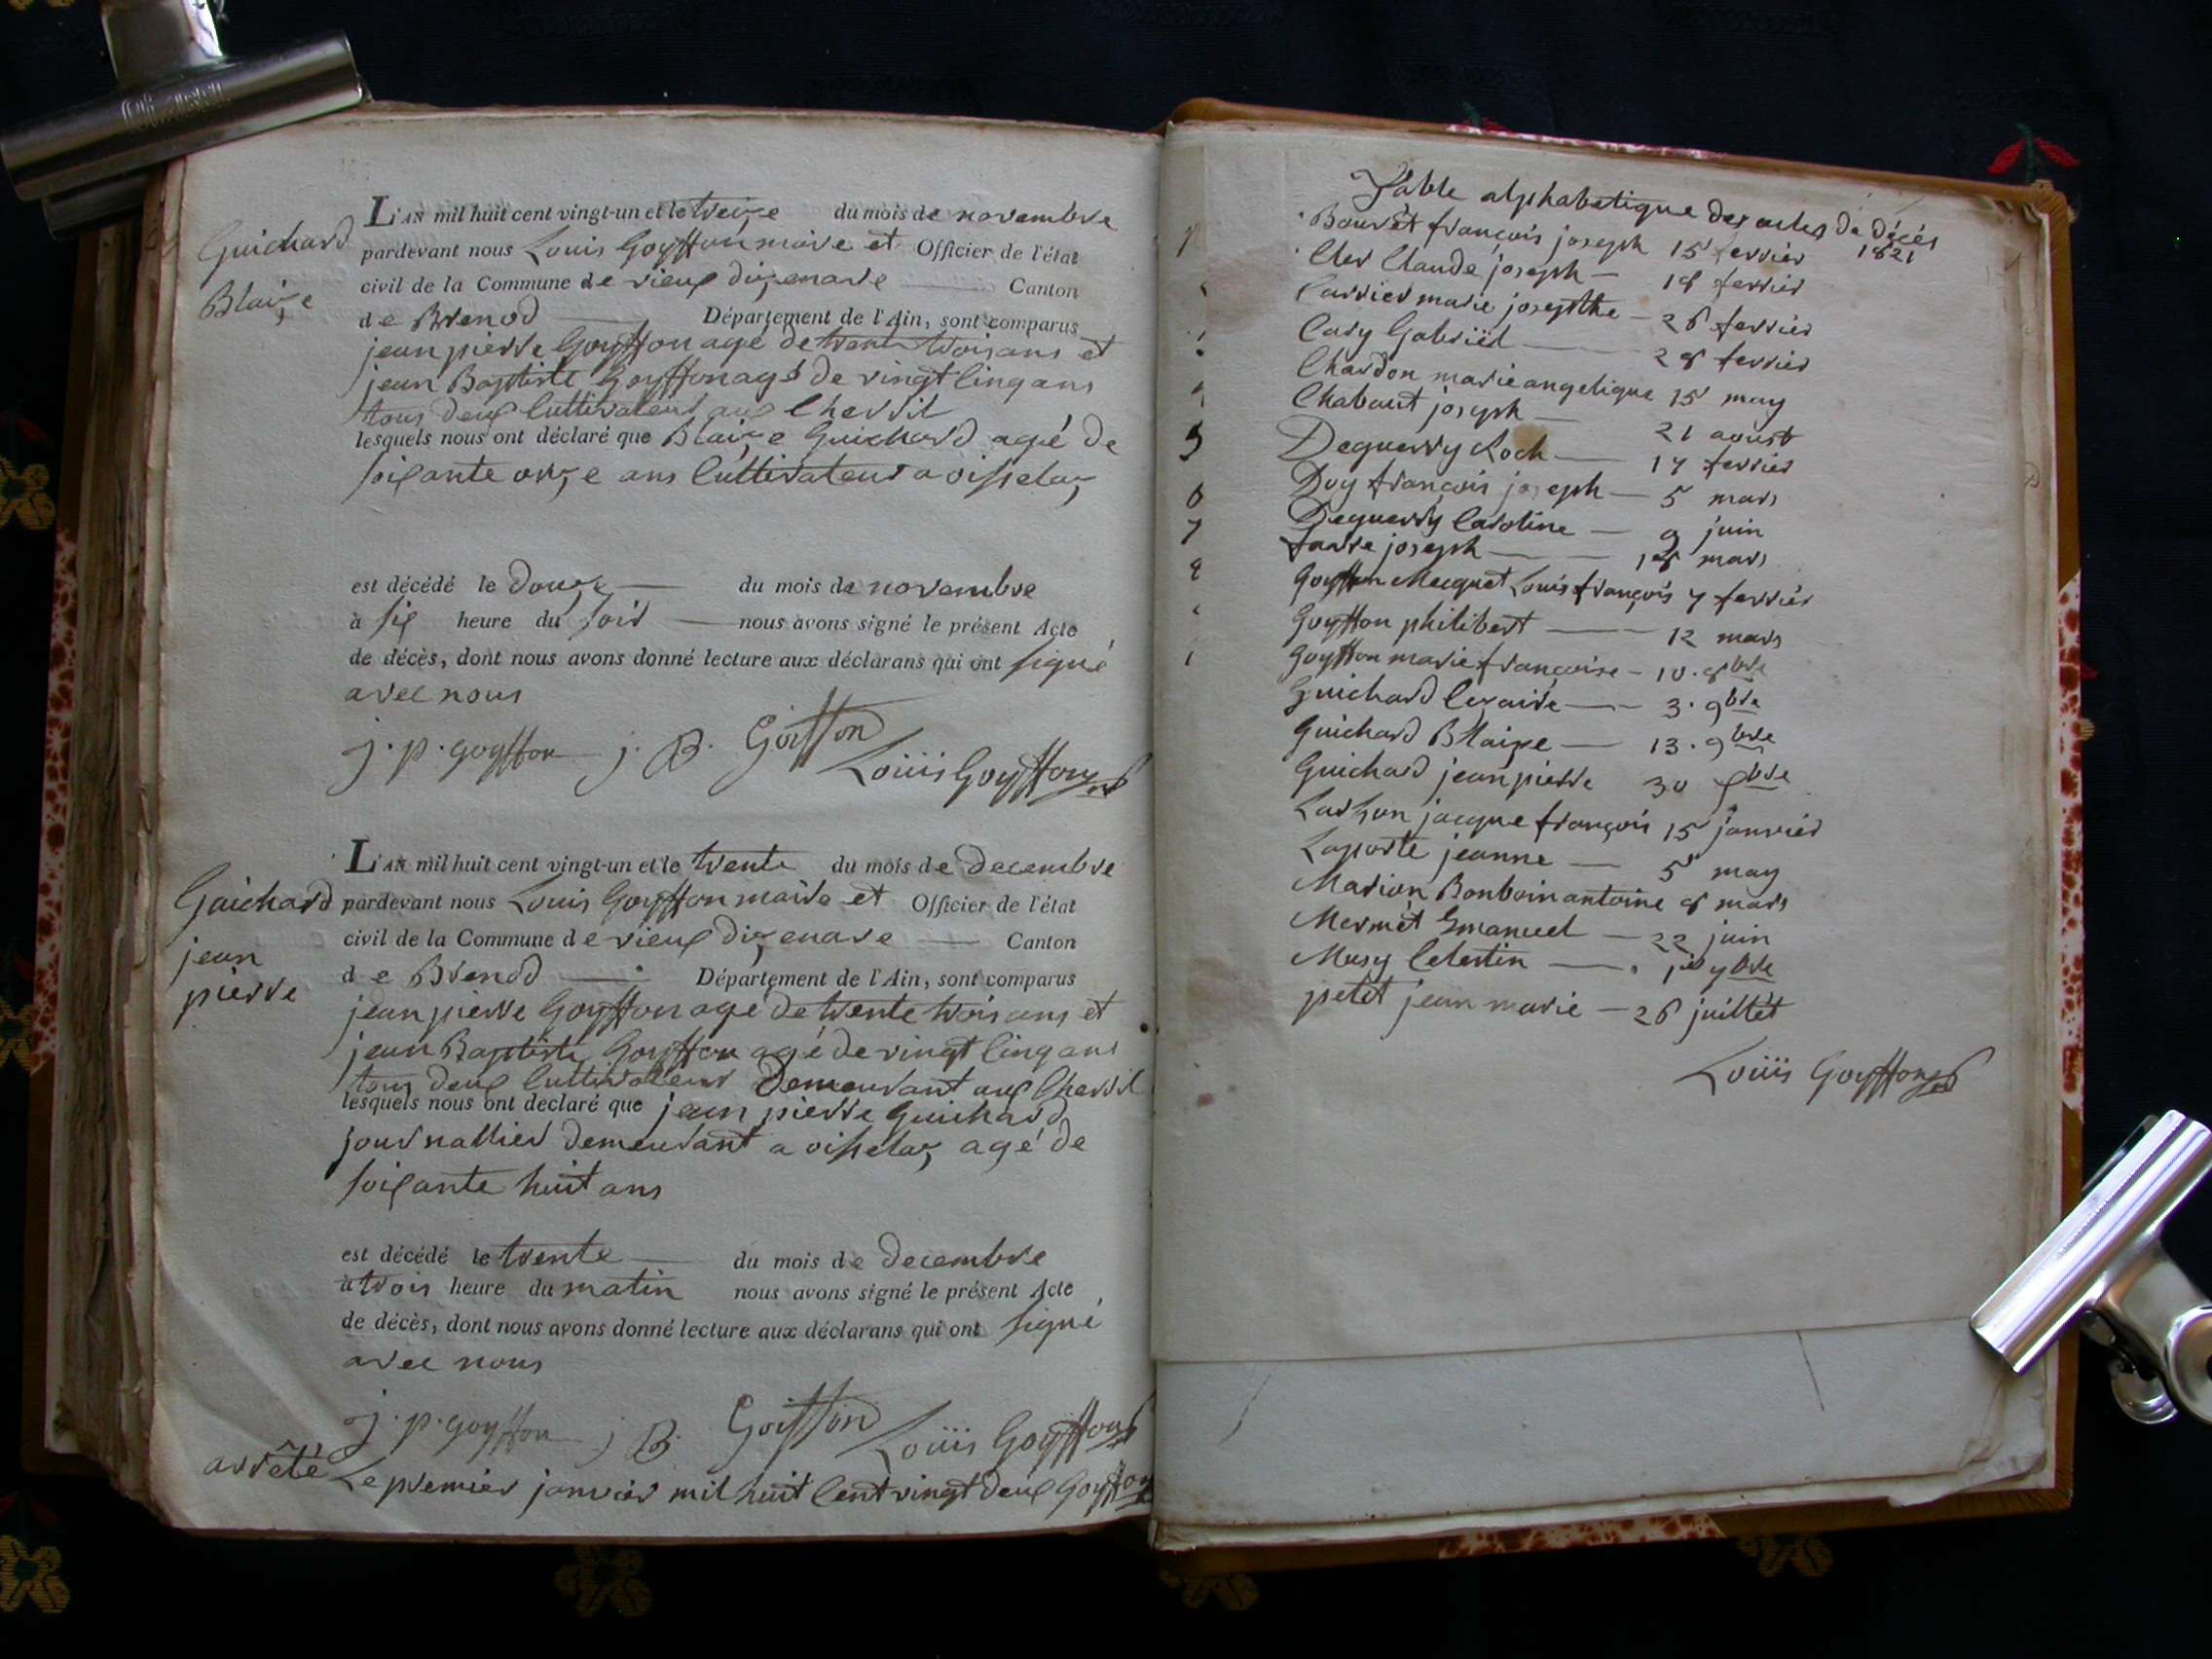 Guichard
Blaize
L'AN mil huit cent vingt-un et le treize du mois de novembre
pardevant nous Louis Goyffon maire et Officier de l'état
civil de la Commune de vieux dizenave Canton
de Brenod Département de l'Ain, sont comparus
jean pierre Goyffon agé de trente trois ans et
jean Baptiste Goyffon agé de vingt cinq ans
tous deux cultivateur aux Chevril
lesquels nous ont déclaré que Blaize Guichard agé de
soixante onze ans cultivateur a oisselaz
est décédé le douze du mois de novembre
à six heure du soir nous avons signé le présent Acte
de décès, dont nous avons donné lecture aux déclarans qui ont signé
avec nous
j. p. goyffon j. B. Goiffon
Louis Goyffon
Guichard
jean
pierre
L'AN mil huit cent vingt-un et le trente du mois de decembre
pardevant nous Louis Goyffon maire et Officier de l'état
civil de la Commune de vieux dizenave Canton
de Brenod Département de l'Ain, sont comparus
jean pierre Goyffon agé de trente trois ans et
jean Baptiste Goyffon agé de vingt cinq ans
tous deux cultivateur Demeurant aux Chevril
lesquels nous ont déclaré que jean pierre Guichard
journallier demeurant a oisselaz agé de
soixante huit ans
est décédé le trente du mois de decembre
à trois heure du matin nous avons signé le présent Acte
de décès, dont nous avons donné lecture aux déclarans qui ont signé
avec nous
j. p. goyffon j B. Goiffon Louis Goyffon
arrêté Le premier janvier mil huit cent vingt deux Goyffon
Table alphabetique des actes de décés
1821
Bouvét françois joseph 15 fevrier
Cler Claude joseph — 18 fevrier
Carrier marie josepthe — 26 fevrier
Cary Gabriël — 28 fevrier
Chardon marie angelique 15 may
Chabout joseph — 21 aoust
Deguerry Roch — 17 fevrier
Duy françois joseph — 5 mars
Deguerry Caroline — 9 juin
favre joseph — 18 mars
Goyffon Mecquet Louis françois 7 fevrier
Goyffon philibert — 12 mars
Goyffon marie françoise — 10. 8bre
Guichard Cezaire — 3. 9bre
Guichard Blaize — 13. 9bre
Guichard jean pierre 30 Xbre
jacque françois 15 janvier
Laporte jeanne — 5 may
Marion Bonboin antoine 8 mars
Mermét Emanuel — 22 juin
Musy Celestin — 7bre
petit jean marie — 26 juillét
Louis Goyffon